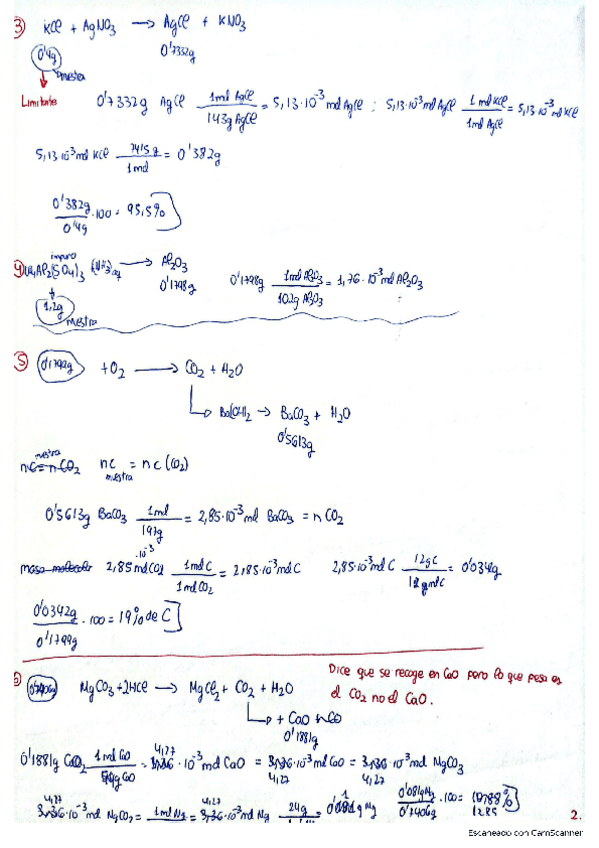 3 KCl + AgNO3 ⟶ AgCl + KNO3
0'4g 0'7332g
muestra
Limitante 0'7332g AgCl 1mol AgCl/143g AgCl = 5,13·10^-3 mol AgCl ; 5,13·10^-3 mol AgCl 1 mol KCl/1mol AgCl = 5,13·10^-3 mol KCl
5,13·10^-3 mol KCl 74'5 g/1 mol = 0'382g
0'382g/0'4g ·100 = 95,5%
impuro
4 Al2(SO4)3 (NH3)aq ⟶ Al2O3
0'1798g 0'1798g 1mol Al2O3/102g Al2O3 = 1,76·10^-3 mol Al2O3
1,2g
muestra
5 +O2 ⟶ CO2 + H2O
Ba(OH)2 → BaCO3 + H2O
0'5613g
muestra
nC = nCO2 nC = nC (CO2)
muestra
0'5613g BaCO3 1mol/197g = 2,85·10^-3 mol BaCO3 = n CO2
2,85·10^-3 mol CO2 1 mol C/1 mol CO2 = 2,85·10^-3 mol C 2,85·10^-3 mol C 12g C/1 mol C = 0'0342g
0'0342g/0'1799g ·100 = 19% de C
Dice que se recoge en CaO pero lo que pesa es
el CO2 no el CaO.
6 0'7406g MgCO3 + 2HCl ⟶ MgCl2 + CO2 + H2O
+ CaO
0'1881g
0'1881g CO2 1 mol = 4,27·10^-3 mol CaO = 4,27·10^-3 mol CaO = 4,27·10^-3 mol MgCO3
4,27·10^-3 mol MgCO3 = 1 mol Mg = 4,27·10^-3 mol Mg 24g = g Mg /0'7406g ·100 =
2.
Escaneado con CamScanner